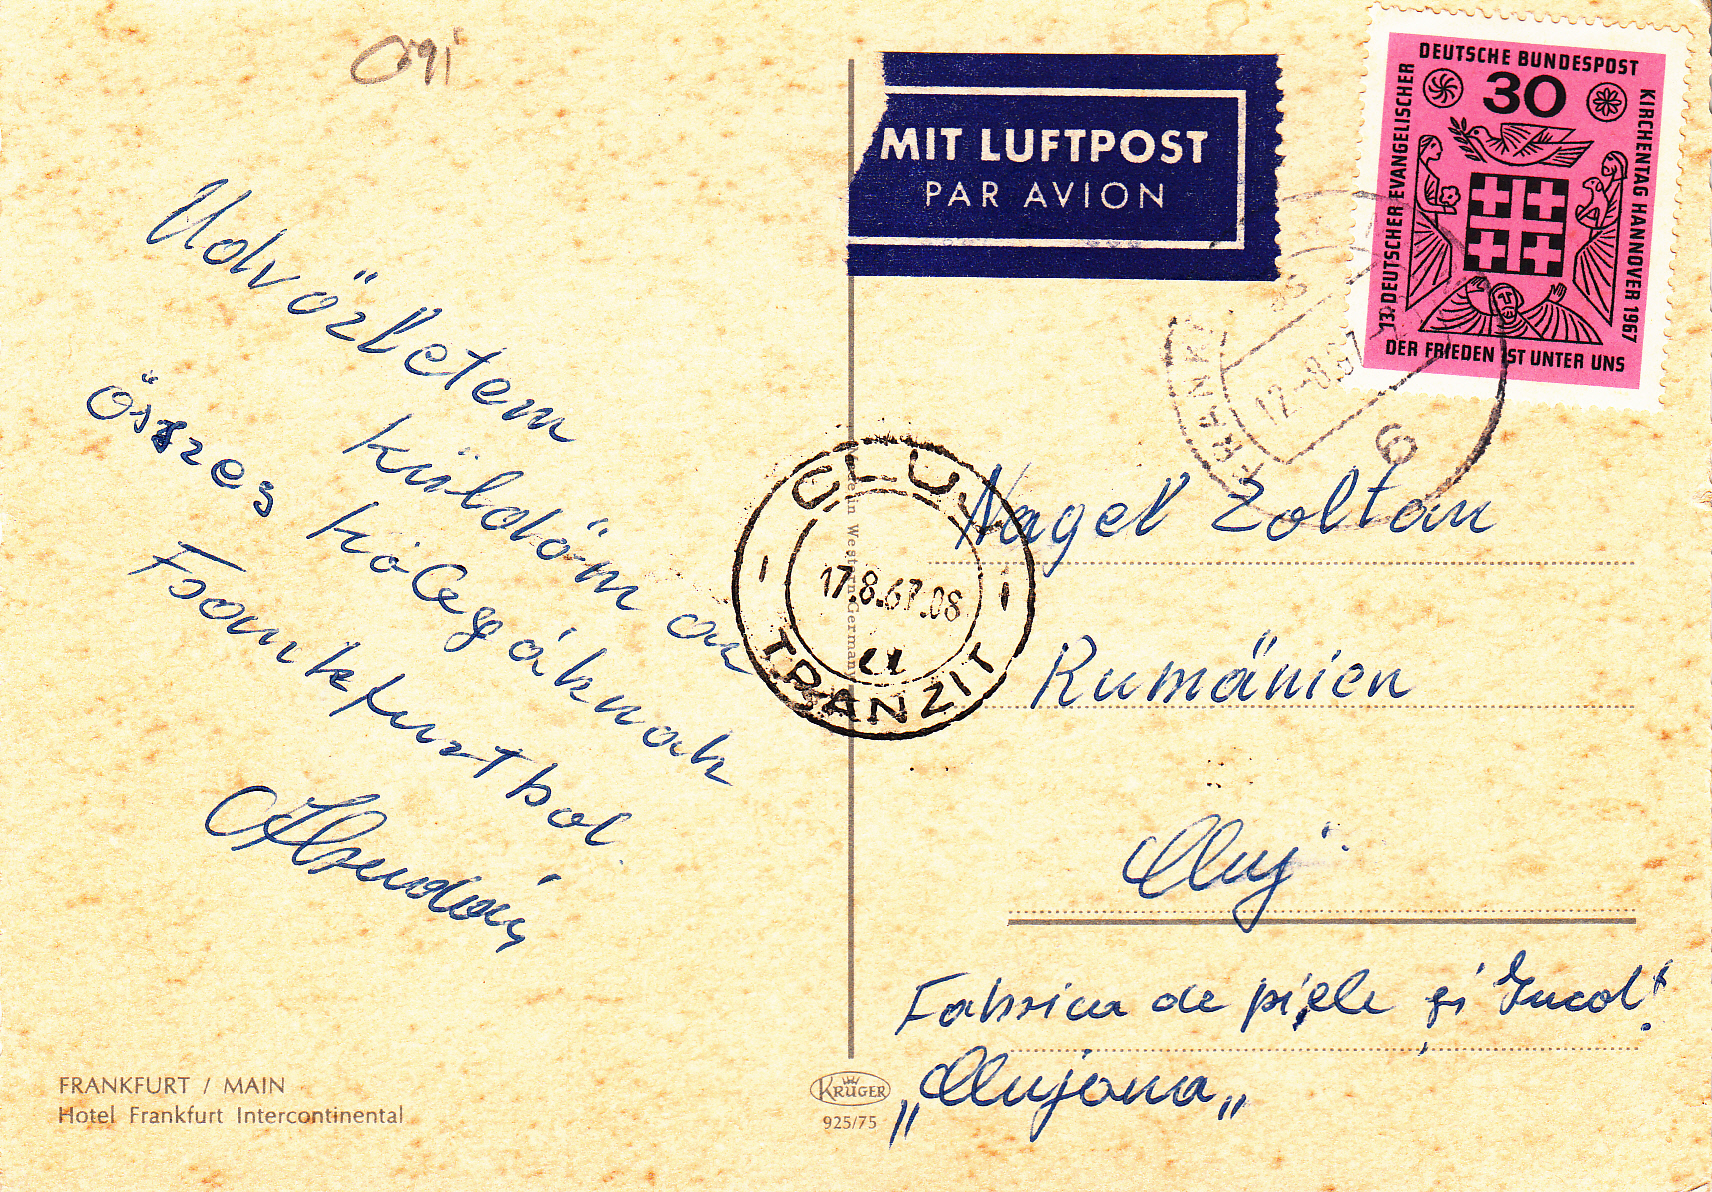 Üdvözletem
küldöm az
összes kollegáknak
Frankfurtbol.
FRANKFURT / MAIN
Hotel Frankfurt Intercontinental
KRÜGER
925/75
MIT LUFTPOST
PAR AVION
DEUTSCHE BUNDESPOST
30
13. DEUTSCHER EVANGELISCHER
KIRCHENTAG HANNOVER 1967
DER FRIEDEN IST UNTER UNS
FRANKF
12.-8.67
6
CLUJ
17.8.67.08
TRANZIT
Nagel Zoltan
Rumänien
Cluj
Fabrica de piele și Incolț.
„Clujana„